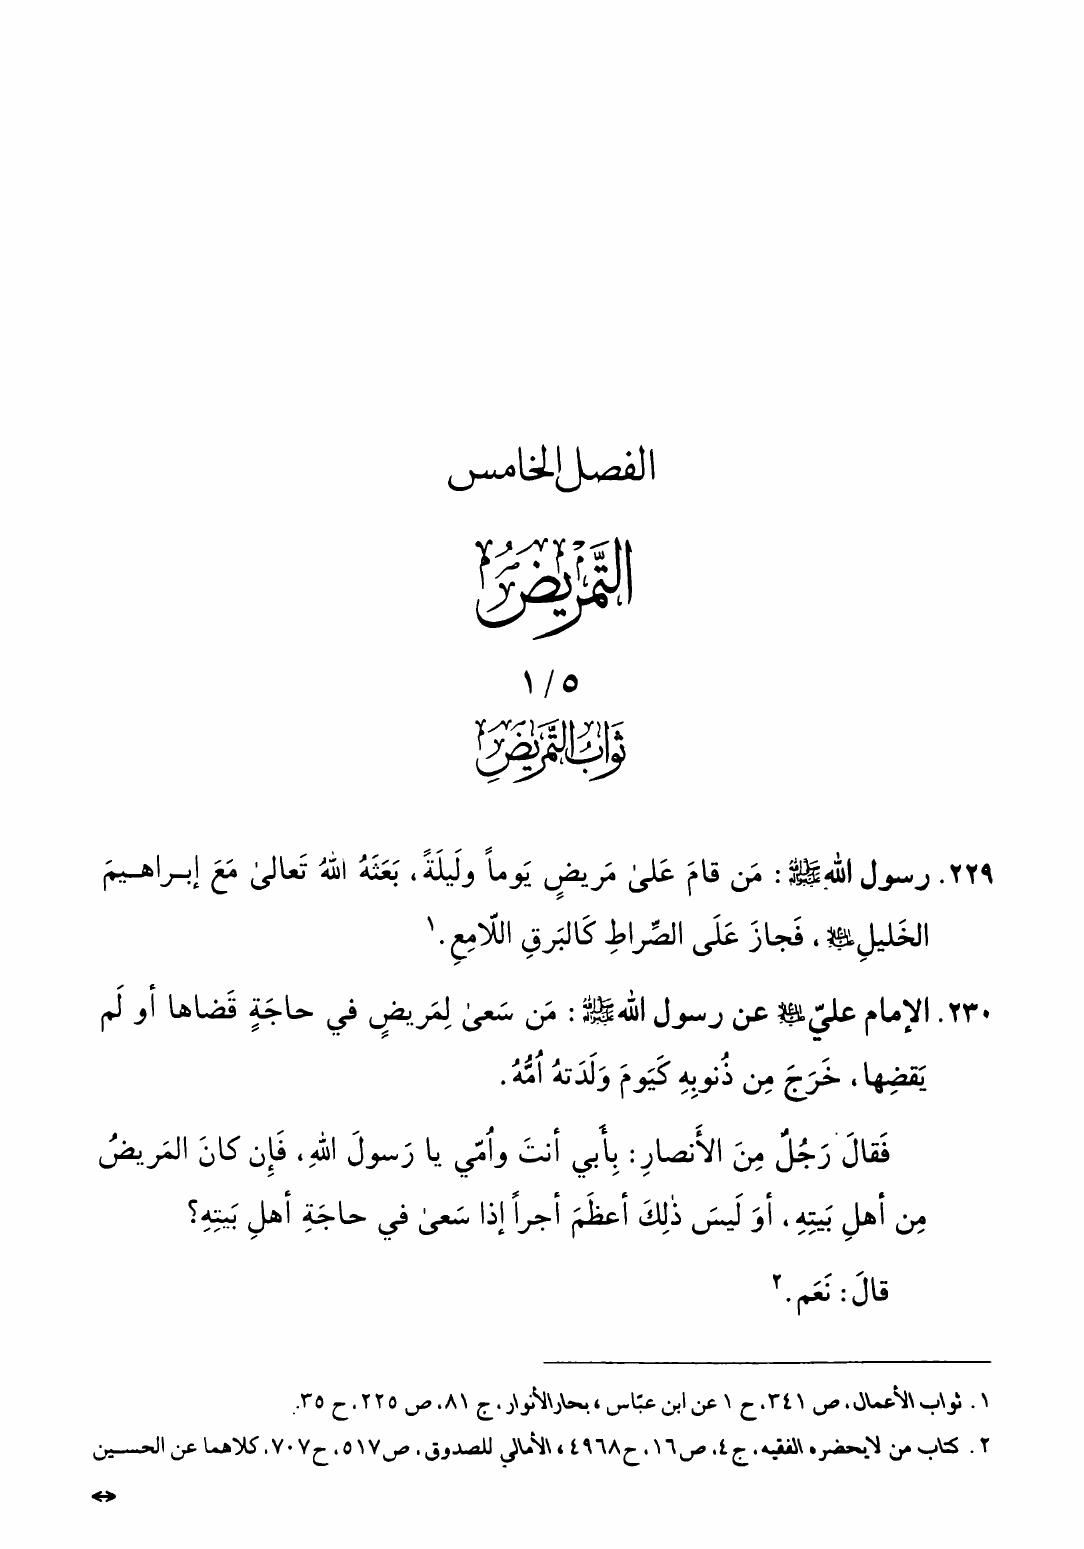 الفصل الخامس
التَّمريضُ
٥ / ١
ثَوابُ التَّمريضِ
٢٢٩. رسول الله ﷺ : مَن قامَ عَلىٰ مَريضٍ يَوماً ولَيلَةً، بَعَثَهُ اللهُ تَعالىٰ مَعَ إبـراهـيمَ
الخَليلِ ؑ ، فَجازَ عَلَى الصِّراطِ كَالبَرقِ اللّامِعِ.١
٢٣٠. الإمام عليّ ؑ عن رسول الله ﷺ : مَن سَعىٰ لِمَريضٍ في حاجَةٍ قَضاها أو لَم
يَقضِها، خَرَجَ مِن ذُنوبِهِ كَيَومَ وَلَدَتهُ اُمُّهُ.
فَقالَ رَجُلٌ مِنَ الأَنصارِ: بِأَبي أنتَ واُمّي يا رَسولَ اللهِ، فَإِن كانَ المَريضُ
مِن أهلِ بَيتِهِ، أوَ لَيسَ ذٰلِكَ أعظَمَ أجراً إذا سَعىٰ في حاجَةِ أهلِ بَيتِهِ؟
قالَ: نَعَم.٢
١ . ثواب الأعمال، ص ٣٤١، ح ١ عن ابن عبّاس ، بحارالأنوار، ج ٨١، ص ٢٢٥، ح ٣٥.
٢ . كتاب من لايحضره الفقيه، ج ٤، ص ١٦، ح ٤٩٦٨ ، الأمالي للصدوق، ص ٥١٧، ح ٧٠٧، كلاهما عن الحسـين
↔